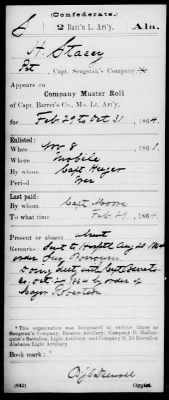 (Confederate.)
S 2 Batt'n L. Art'y. Ala.
H. Stacey
Pvt, Capt. Sengstak's Company,*
Appears on
Company Muster Roll
of Capt. Barret's Co., Mo. Lt. Art'y,
for Feb 29 to Oct 31, 1864.
Enlisted:
When Nov 8, 1861.
Where Mobile
By whom Capt Huger
Period War
Last paid:
By whom Capt Moore
To what time Feb 29, 1864.
Present or absent Absent
Remarks: Sent to Hospt Aug 20
order
Oct 1864 by order of
Major Robertson
*This organization was designated at various times as
Sengstak's Company, Reserve Artillery; Company D, Hallon-
quist's Battalion, Light Artillery, and Company D, 2d Battalion
Alabama Light Artillery.
Book mark:
(642) Copyist.